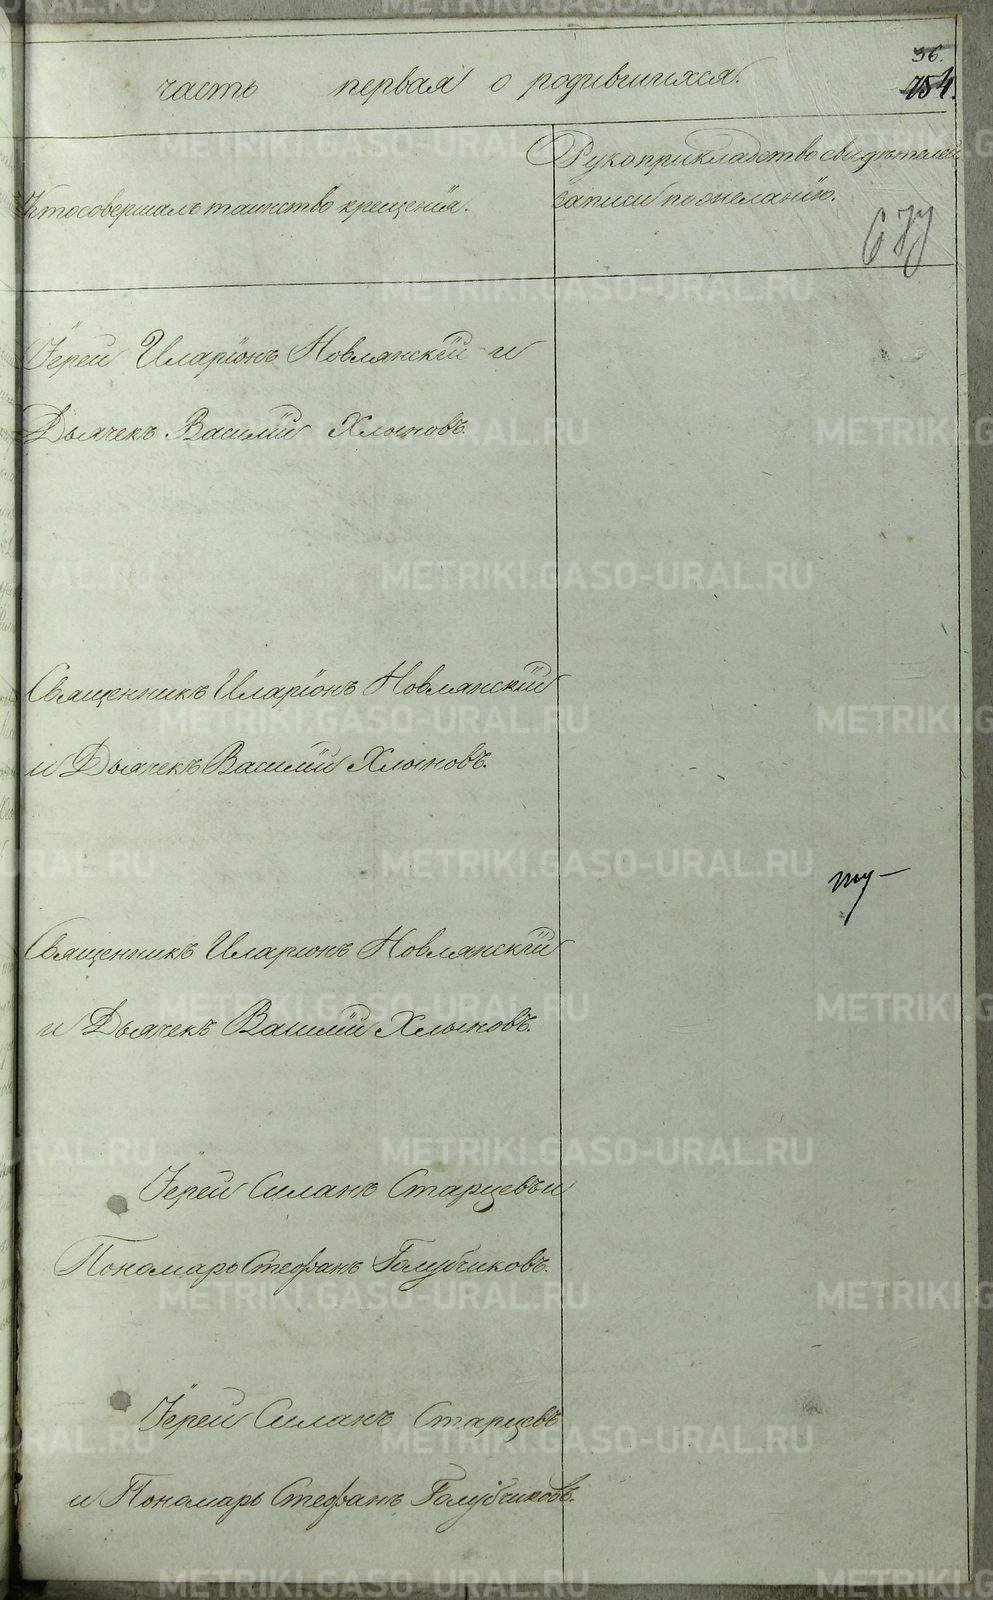 36.
754.
часть первая о родившихся.
Ктосовершалъ таинство крещенія.
Рукоприкладство свидѣтелей
записи по желанію.
677
Іерей Иларіонъ Новлянскій и
Дьячекъ Василій Хлыновъ.
Священникъ Иларіонъ Новлянскій
и Дьячекъ Василій Хлыновъ.
Священникъ Иларіонъ Новлянскій
и Дьячекъ Василій Хлыновъ.
Іерей Силанъ Старцевъ и
Пономарь Стефанъ Голубчиковъ.
Іерей Силанъ Старцевъ
и Пономарь Стефанъ Голубчиковъ.
METRIKI.GASO-URAL.RU